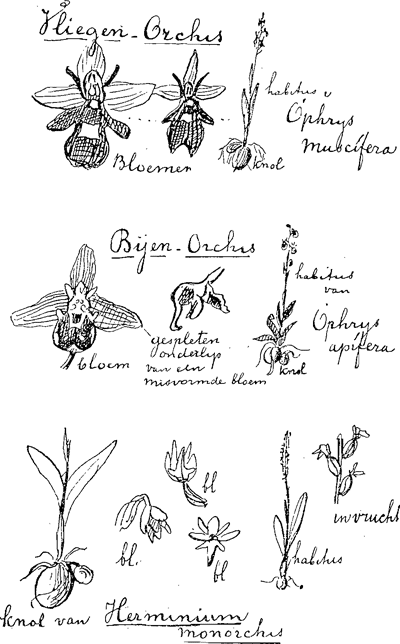 Vliegen-Orchis
habitus v
Ophrys
muscifera
Bloemen
knol
Bijen-Orchis
habitus
van
Ophrys
apifera
bloem
gespleten
onderlip
van een
misvormde bloem
knol
bl
in vrucht
bl.
bl
habitus
knol van Herminium
monorchis